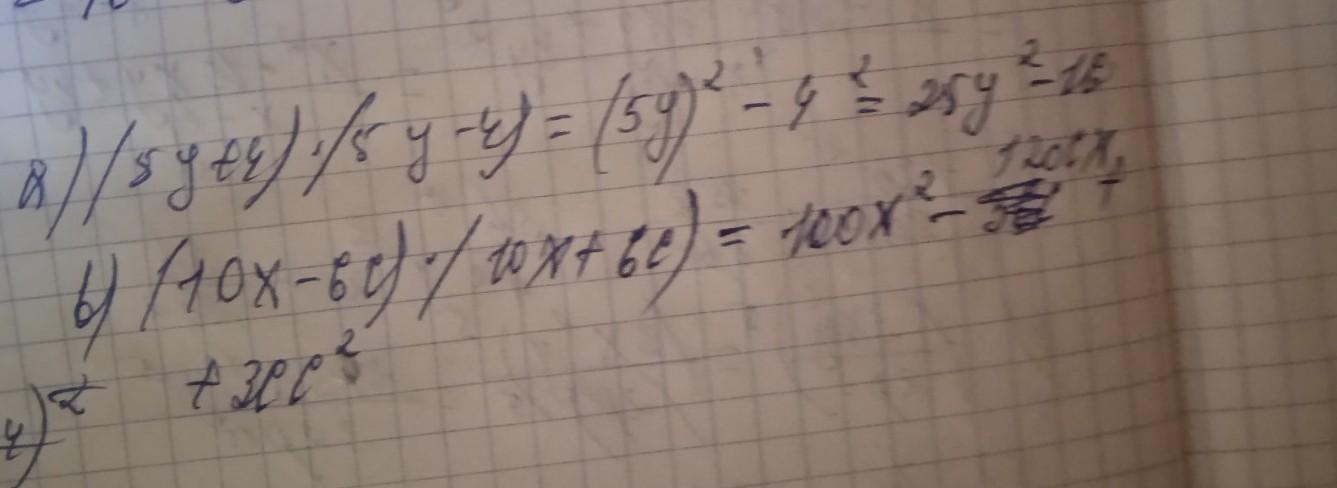 а) (5y+4)·(5y-4) = (5y)² - 4² = 25y² - 16
б) (10x-6c)·(10x+6c) = 100x² - 120cx +
+ 36c²
4)²